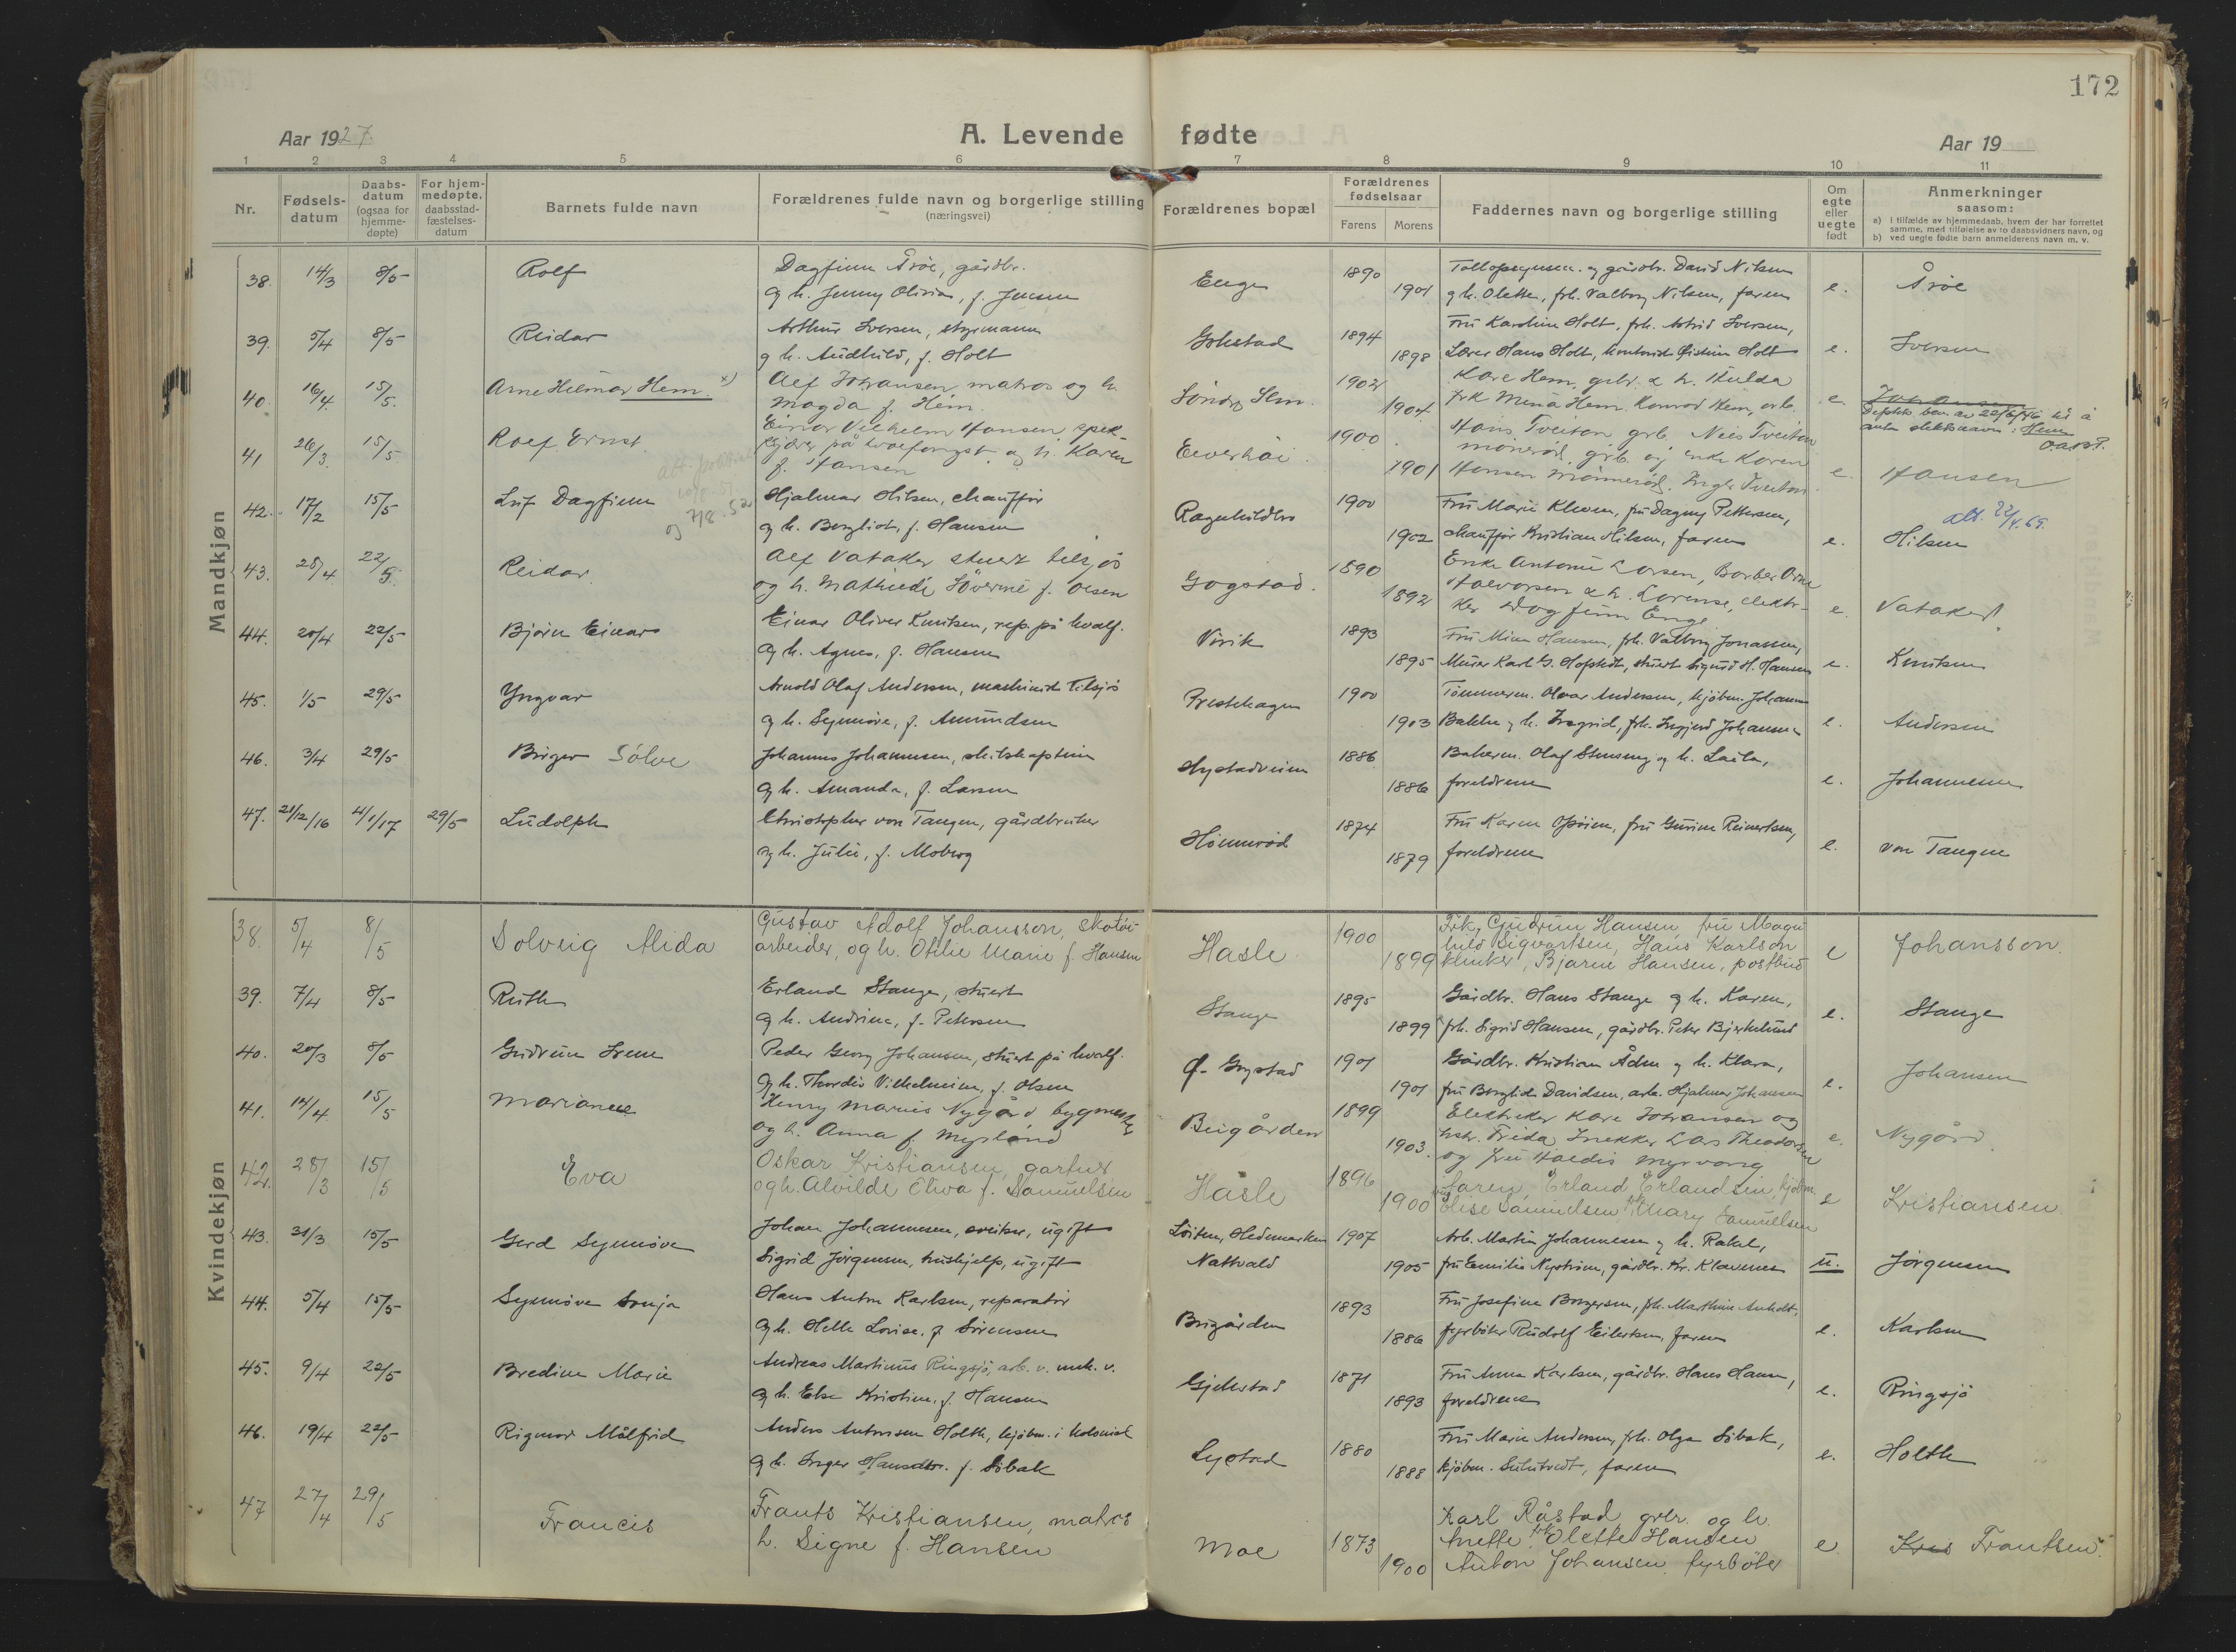 172
Aar 1927.
A. Levende fødte
Aar 19
1 2 3 4 5 6 7 8 9 10 11
Nr.
Fødsels-
datum
Daabs-
datum
(ogsaa for
hjemme-
døpte)
For hjem-
medøpte,
daabsstad-
fæstelses-
datum
Barnets fulde navn
Forældrenes fulde navn og borgerlige stilling
(næringsvei)
Forældrenes bopæl
Forældrenes
fødselsaar
Farens Morens
Faddernes navn og borgerlige stilling
Om
egte
eller
uegte
født
Anmerkninger
saasom:
a) i tilfælde av hjemmedaab, hvem der har forrettet
samme, med tilføielse av to daabsvidners navn, og
b) ved uegte fødte barn anmelderens navn m. v.
Mandkjøn
38. 14/3 8/5 Rolf Dagfinn Åröe, gårdbr. Enge 1890
og h. Jenny Olivia, f. Jensen 1901 g h. Olette, frk. Valborg Nilsen, faren e. Åröe
39. 5/4 8/5 Reidar Arthur Iversen, styrmann Gokstad 1894 Fru Karoline Holt, frk. Astrid Iversen,
g h. Audhild, f. Holt 1898 Lærer Hans Holt, kontorist Øistein Holt e. Iversen
40. 16/4 15/5. Arne Hilmar Hem. x) Alf Johansen matros og h. 1902 Kåre Hem, grbr. & h. Hulda
Magda f. Hem. 1904 Frk Mena Hem. Konrad Hem, arb. e. Johansen
41 26/3. 15/5 Rolf Ernst Einar Vilhelm Hansen spek-
kjærer på hvalfangst og h. Karen 1900
f. Hansen 1901 e. Hansen
42. 17/2 15/5 Leif Dagfinn Hjalmar Hilsen, chauffør Ragnhildbo 1900 Fru Marie Kleven, fru Dagny Pettersen,
og h. Bergliot, f. Hansen 1902 chauffør Kristian Hilsen, faren e. Hilsen
43. 28/4 22/5. Reidar. Alf Vataker stuert tilsjös Gogstad. 1890 Enke Antonie Larsen, Barber Arne
og h. Mathilde f. Olsen 1892 Halvorsen & h. Lorense, elektr-
ker Dagfinn Enge e. Vataker
44. 20/4 22/5 Bjørn Einar Einar Oliver Knutsen, rep. på hvalf. Virik 1893 Fru Mina Hansen, frk. Valborg Jonassen,
og h. Agnes, f. Hansen 1895 Murer Karl G. Hofstedt, stuert Sigurd H. Hansen e. Knutsen
45. 1/5 29/5 Yngvar Arnold Olaf Andersen, maskinist tilsjös Prestehagen 1900 Tömmerm. Olvar Andersen, kjöbm. Johannes
og h. Synnöve, f. Amundsen 1903 Bakke g h. Ingrid, frk. Ingjerd Johansen e. Andersen
46. 3/4 29/5 Birger Sölve Johannes Johannesen, skibskaptein Nystadveien 1886 Bakerm. Olaf Stenseng og h. Laila,
og h. Amanda, f. Larsen 1886 foreldrene e. Johannesen
47. 21/12/16 4/1/17 29/5 Ludolph Christopher von Tangen, gårdbruker 1874
og h. Julie, f. Moberg 1879 foreldrene e. von Tangen
Kvindekjøn
38. 5/4 8/5 Solveig Alida Gustav Adolf Johansson, skotöi-
arbeider, og h. Otilie Marie f. Hansen Hasle 1900 Frk. Gudrun Hansen, fru Magn
hild Sigvartsen, Hans Karlson
1899 klinker, Bjarne Hansen, postbud e Johansson.
39. 7/4 8/5 Ruth Erland Stange, stuert Stange 1895 Gårdbr. Hans Stange og h. Karen,
og h. Andrine, f. Petersen 1899 frk. Sigrid Hansen, gårdbr. Peter Bjerkelund e. Stange
40. 20/3 8/5 Gudrun Irene Peder Georg Johansen, stuert på hvalf. 1901 Gårdbr. Kristian Åden g h. Klara,
og h. Thordis Vilhelmine, f. Olsen 1901 fru Bergliot Davidsen, arb. Hjalmar Johansen e. Johansen
41. 14/4. 15/5 Marianne Henry Marius Nygård bygmester
og h. Anna f. Mysland Beigården 1899 Elektriker Kåre Johansen og
1903. hstr. Frida Snekker Lars Theodorsen
og fru Haldis Myrvang e. Nygård.
42. 28/3 15/5 Eva Oskar Kristiansen, gartner
og h. Alvilde Oliva f. Samuelsen Hasle 1896 faren, Erland Erlandsen, kjöbm.
1900 Elise Samuelsen, frk. Mary Samuelsen e Kristiansen.
43. 31/3 15/5 Gerd Synnöve Johan Johannesen, sveiser, ugift Löiten, Hedmarken 1907 Arb. Martin Johannesen g h. Rakel,
Sigrid Jörgensen, hushjelp, ugift Nattvald 1905 fru Emilie Nyström, gårdbr. Kr. Klavenes u. Jörgensen
44. 5/4 15/5 Synnöve Sonja Hans Anton Karlsen, reparatör Beigården 1893 Fru Josefine Borgersen, frk. Marthine Anholt,
og h. Helle Lovise, f. Sörensen 1886 fyrböter Rudolf Eilertsen, faren e. Karlsen
45. 9/4 22/5 Bredine Marie Andreas Martinus Ringsjö, arb. v. mek. v. Gjekstad 1871 Fru Anna Karlsen, gårdbr. Hans Hansen,
og h. Else Kristine, f. Hansen 1893 foreldrene e. Ringsjö
46. 19/4 22/5 Rigmor Målfrid Anders Antonsen Holth, kjöbm. i kolonial Lystad 1880 Fru Marie Andersen, frk. Olga Sibak,
og h. Inger Hansdtr. f. Sibak 1888 faren e. Holth
47 27/4 29/5 Francis Frants Kristiansen, matros
h. Signe f. Hansen Moe 1873 Karl Råstad, grbr. og h.
Anette, frk Olette Hansen
1900 Anton Johansen, fyrböter e Kris Frantsen.